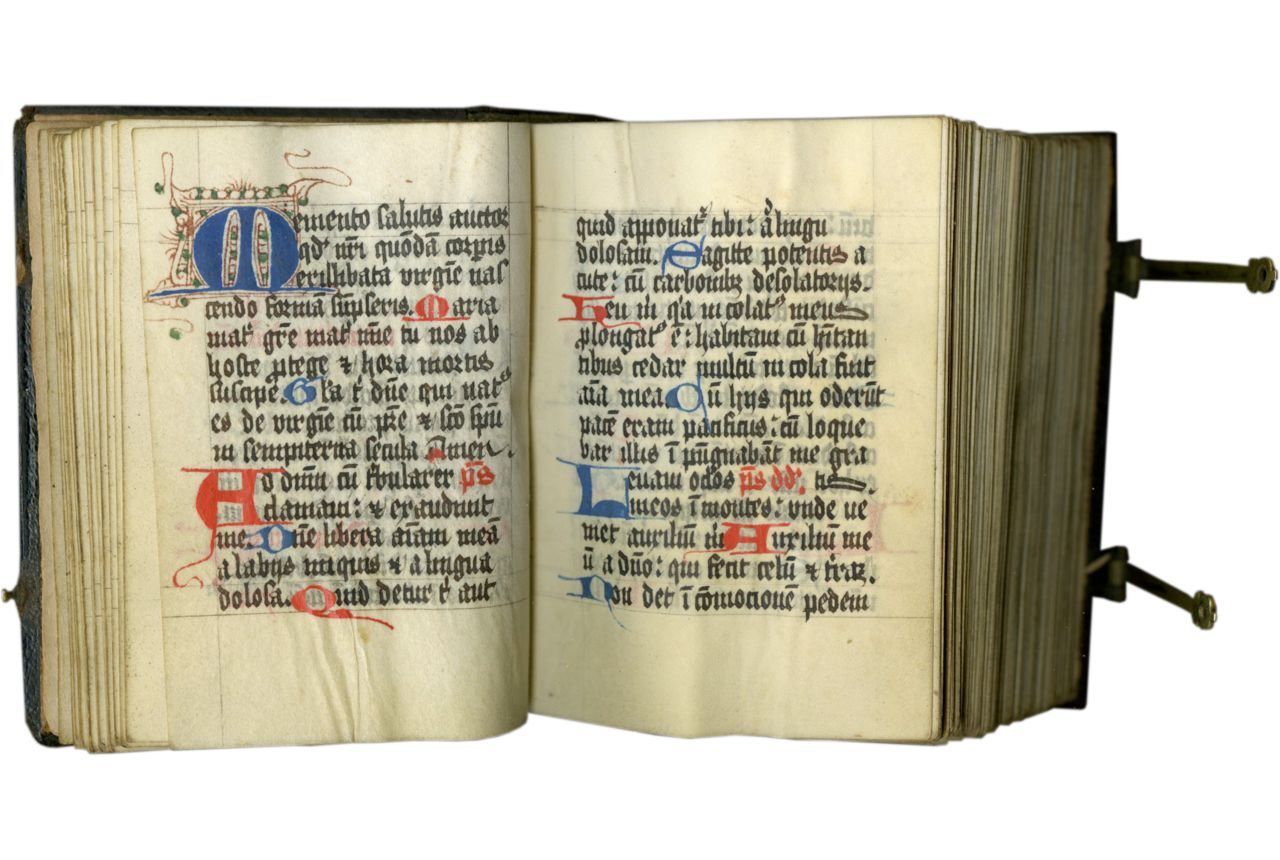 Memento salutis auctor
qđ nr̄i quōdā corpis
exillibata virgīe nas
cendo formā sūpseris. Maria
mat᷒ gr̄e mat᷒ mīe tu nos ab
hoste ꝓtege ⁊ hora mortis
suscipe. Gl̄a t᷒ dn̄e qui nat᷒
es de virgīe cū pr̄e ⁊ sc̄o sp̄u
in sempiterna secula Amen.
Ad dn̄m cū t᷒bularer ps̄
clamaui: ⁊ exaudiuit
me. Dn̄e libera aīam meā
a labijs iniquis ⁊ a lingua
dolosa. Quid detur t᷒ aut
quid apponat᷒ tibi: a᷒ lingu
dolosam. Sagitte potentis a
cute: cū carbonibꝫ desolatorijs.
Heu m̄ q᷒a incolat᷒ meus
ꝓlongat᷒ ē: habitaui cū hītan
tibus cedar multū incola fuit
aīa mea Cū hijs qui oderūt
pacē eram pacificus: cū loque
bar illis īpūgnabāt me gra
Leuaui oc̄los ps̄ dd᷒. tis.
meos ī montes: vnde ue
niet auxiliū m̄ Auxiliū me
ū a dn̄o: qui fecit celū ⁊ t᷒raꝫ.
Non det ī cōmocionē pedem